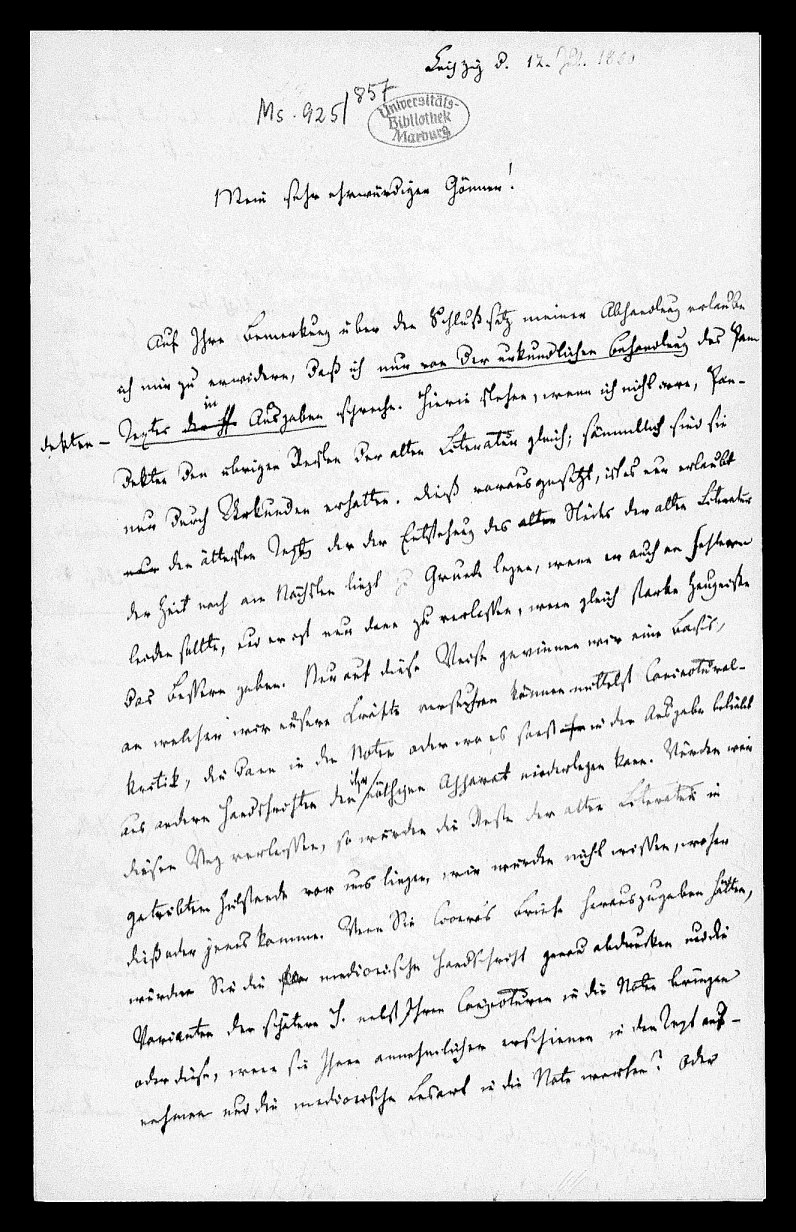 Leipzig d. 12. Jul. 18
Ms. 925/857
Universitäts-
Bibliothek
Marburg
Mein sehr ehrwürdiger Gönner!
Auf Ihre Bemerkung über den Schlußsatz meiner Abhandlung erlaube
ich mir zu erwidern, daß ich nur von der urkundlichen Behandlung des Pan
dekten – Textes in Ausgaben spreche. Hierin stehen, wenn ich nicht irre, Pan-
dekten den übrigen Resten der alten Literatur gleich; sämmtlich sind sie
nur durch Urkunden erhalten. Dieß vorausgesetzt, ist es nur erlaubt
nur den ältesten Text, der der Entstehung des alten Stücks der alten Literatur
der Zeit nach am Nächsten liegt zu Grunde legen, wenn er auch an Fehlern
leiden sollte, und er ist nur dann zu verlassen, wenn gleich starke Zeugnisse
das Bessere geben. Nur auf diese Weise gewinnen wir eine Basis,
an welcher wir unsere Kräfte versuchen können mittelst Conjectural-
kritik, die dann in den Noten oder wo es sonst in der Ausgabe beliebt
aus andern Handschriften den ihr nöthigen Apparat niederlegen kann. Würden wir
diesen Weg verlassen, so würden die Reste der alten Literatur in
getrübtem Zustande vor uns liegen, wir würden nicht wissen, woher
dieß oder jenes komme. Wenn Sie Cicero's Briefe herauszugeben hätten,
würden Sie die mediceische Handschrift genau abdrucken und die
Varianten der spätern H. nebst Ihren Conjecturen in die Noten bringen
oder diese, wenn sie Ihnen annehmlicher erschienen in den Text auf-
nehmen und die mediceische Lesart in die Note werfen? Oder